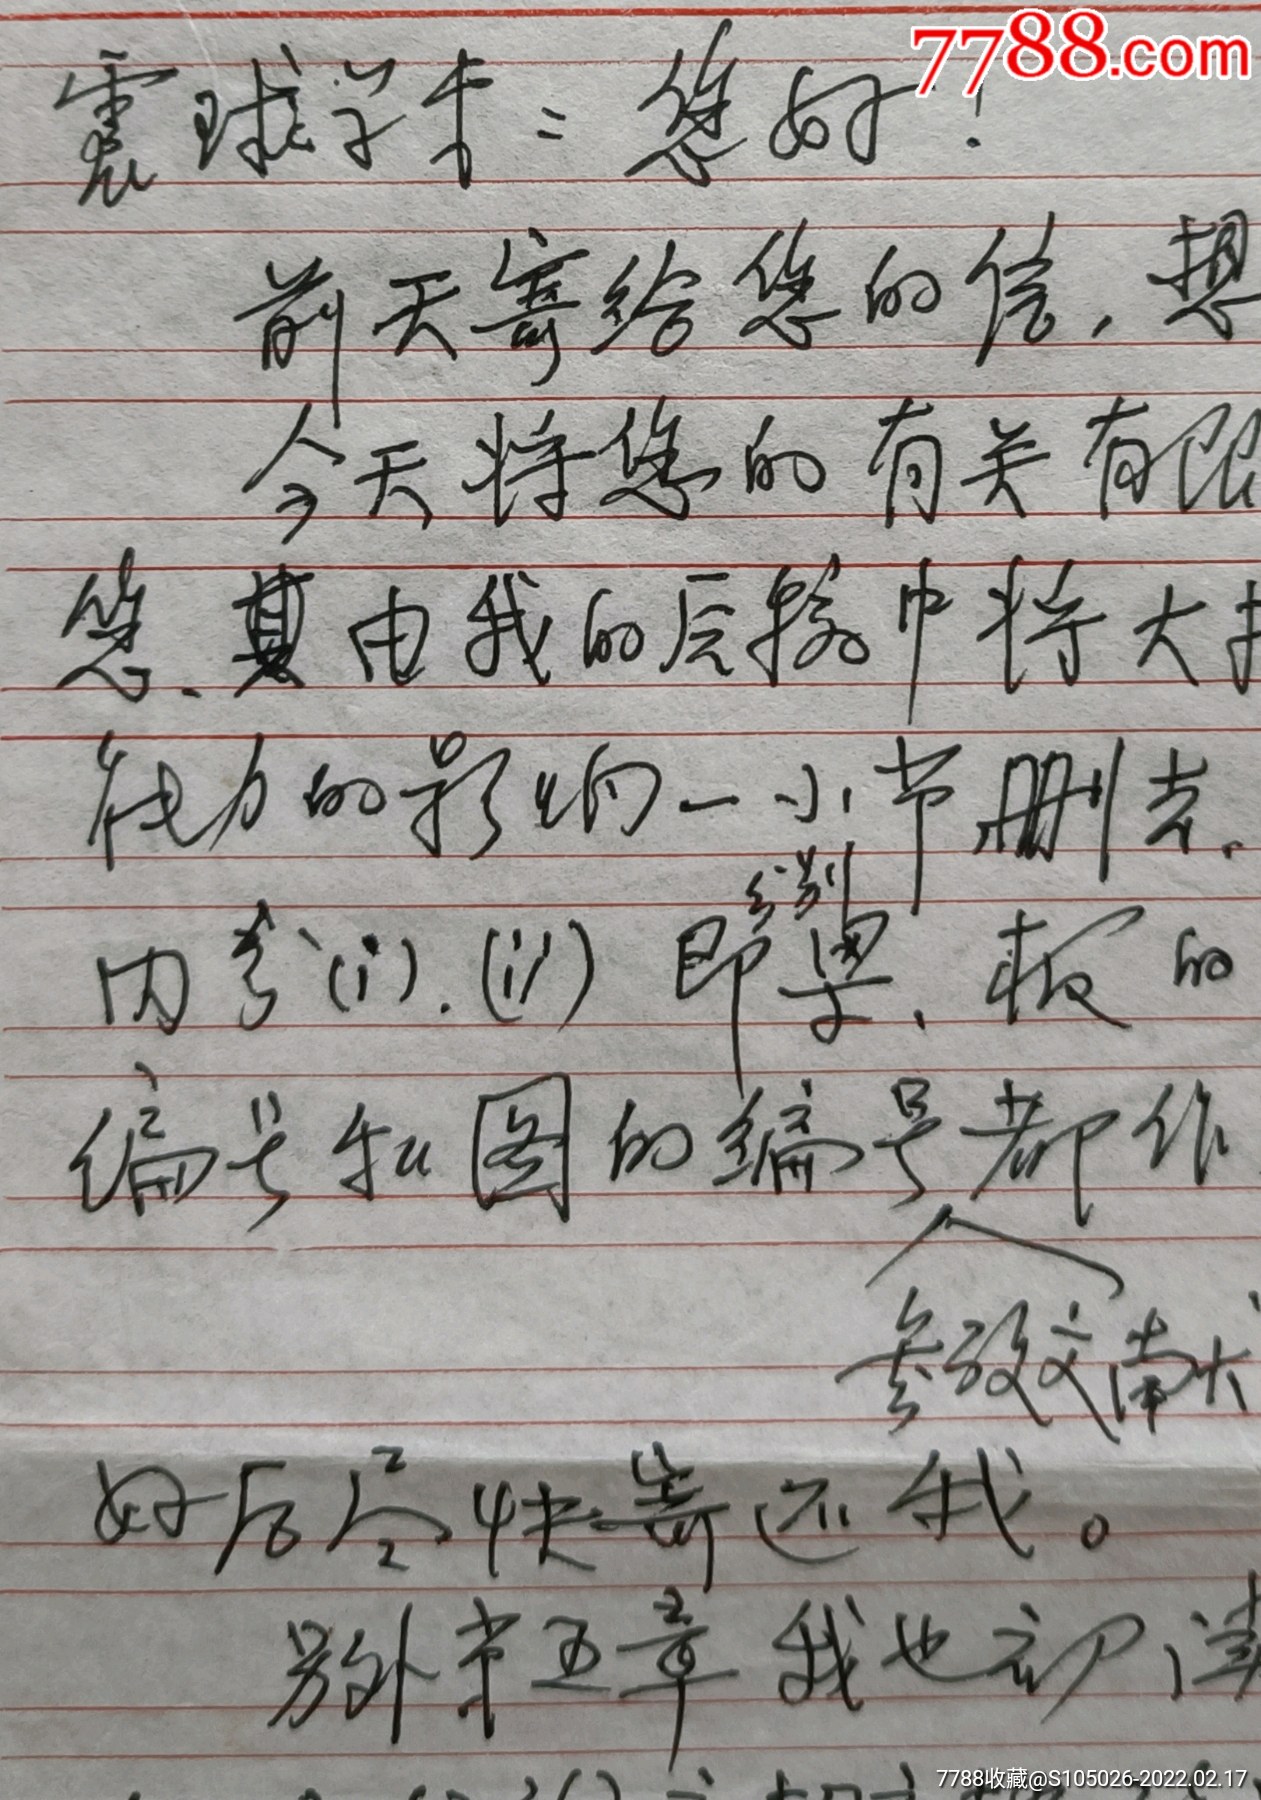 7788.com
震球学弟：您好！
前天寄给您的信，想
今天将您的有关有限
您、其由我的后稿中将大
能力的影响一小节删去.
分别
内容(i).(ii)即梁、板的
编号和图的编号都作
参改文献
好后尽快寄还我。
另外第五章我也初读
7788收藏@S105026-2022.02.17